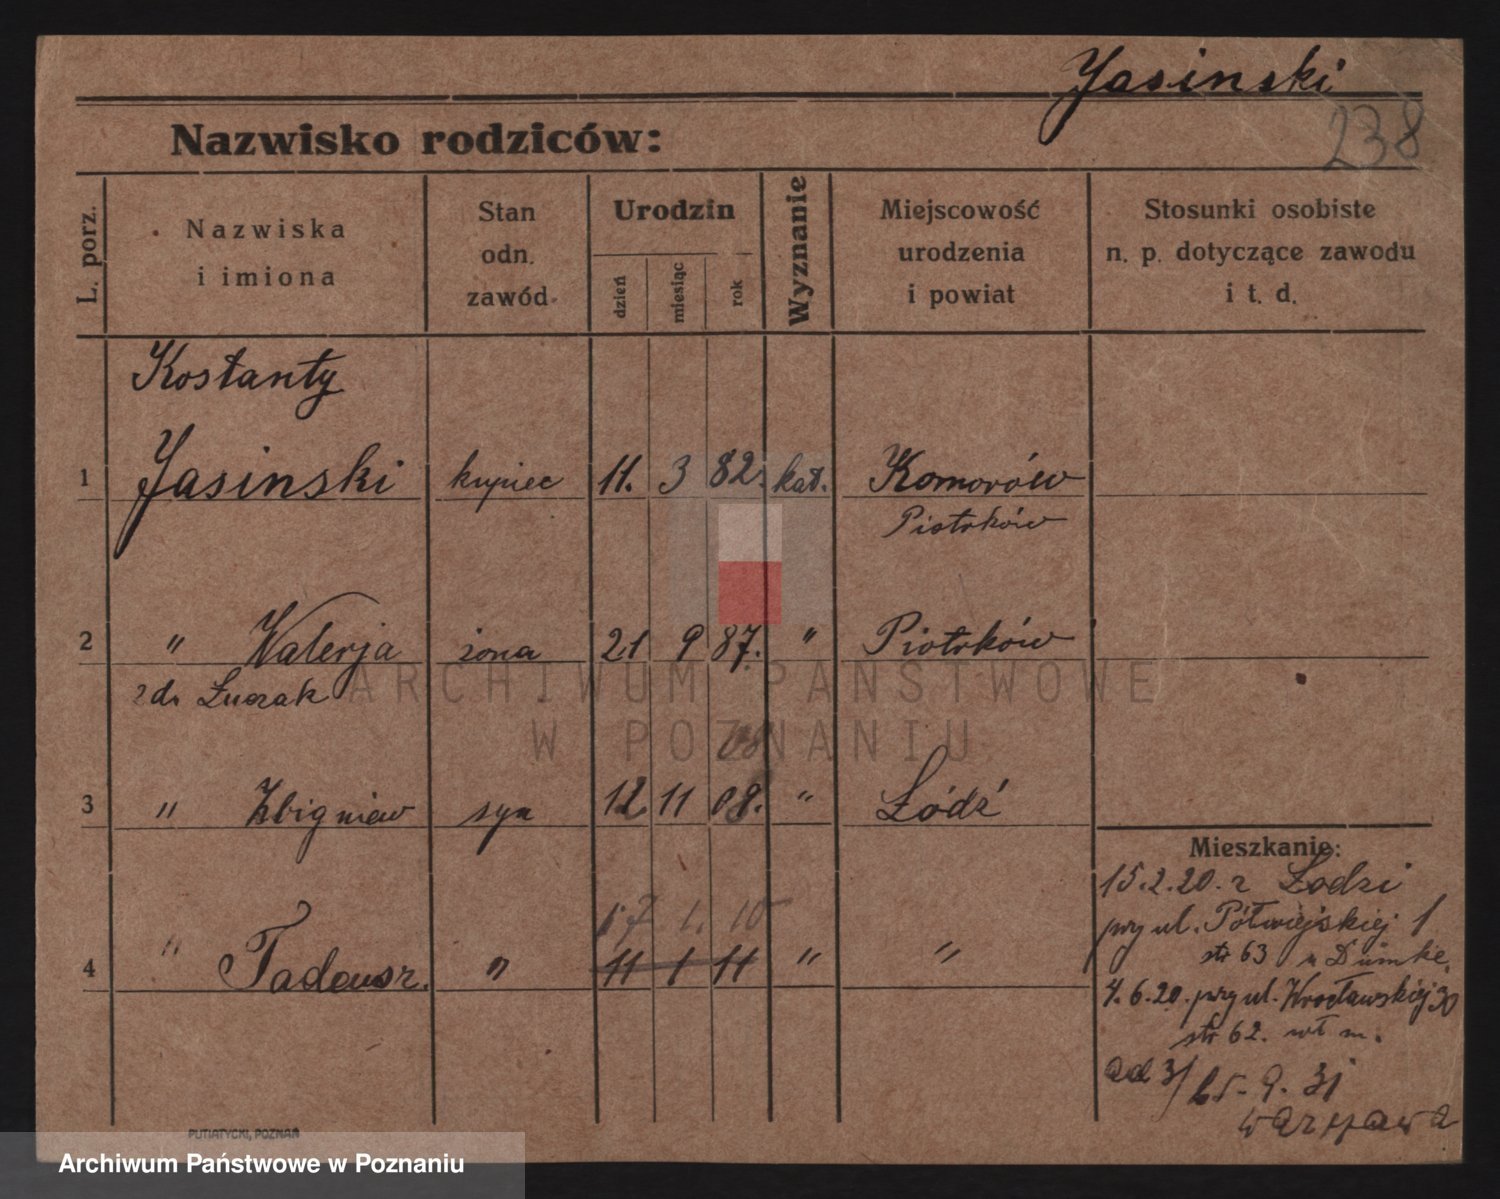 Jasinski
238
Nazwisko rodziców:
L. porz.
Nazwiska
i imiona
Stan
odn.
zawód
Urodzin
dzień
miesiąc
rok
Wyznanie
Miejscowość
urodzenia
i powiat
Stosunki osobiste
n. p. dotyczące zawodu
i t. d.
Kostanty
1 Jasinski kupiec 11. 3 82. kat. Komorów
Piotrków
2 " Walerja żona 21 9 87. " Piotrków
zd. Łuczak
08
3 " Zbigniew syn 12 11 08. " Łódź
Mieszkanie:
15.2.20. z Łodzi
17 1. 10
przy ul. Półwiejskiej 1
str 63 u Dümke
4 " Tadeusz. " 11 1 11 " "
4.6.20. przy ul. Wrocławskiej 30
str 62. wł m.
ad 3/ 15. 9. 31
Warszawa
PUTIATYCKI, POZNAŃ
ARCHIWUM PAŃSTWOWE
W POZNANIU
Archiwum Państwowe w Poznaniu